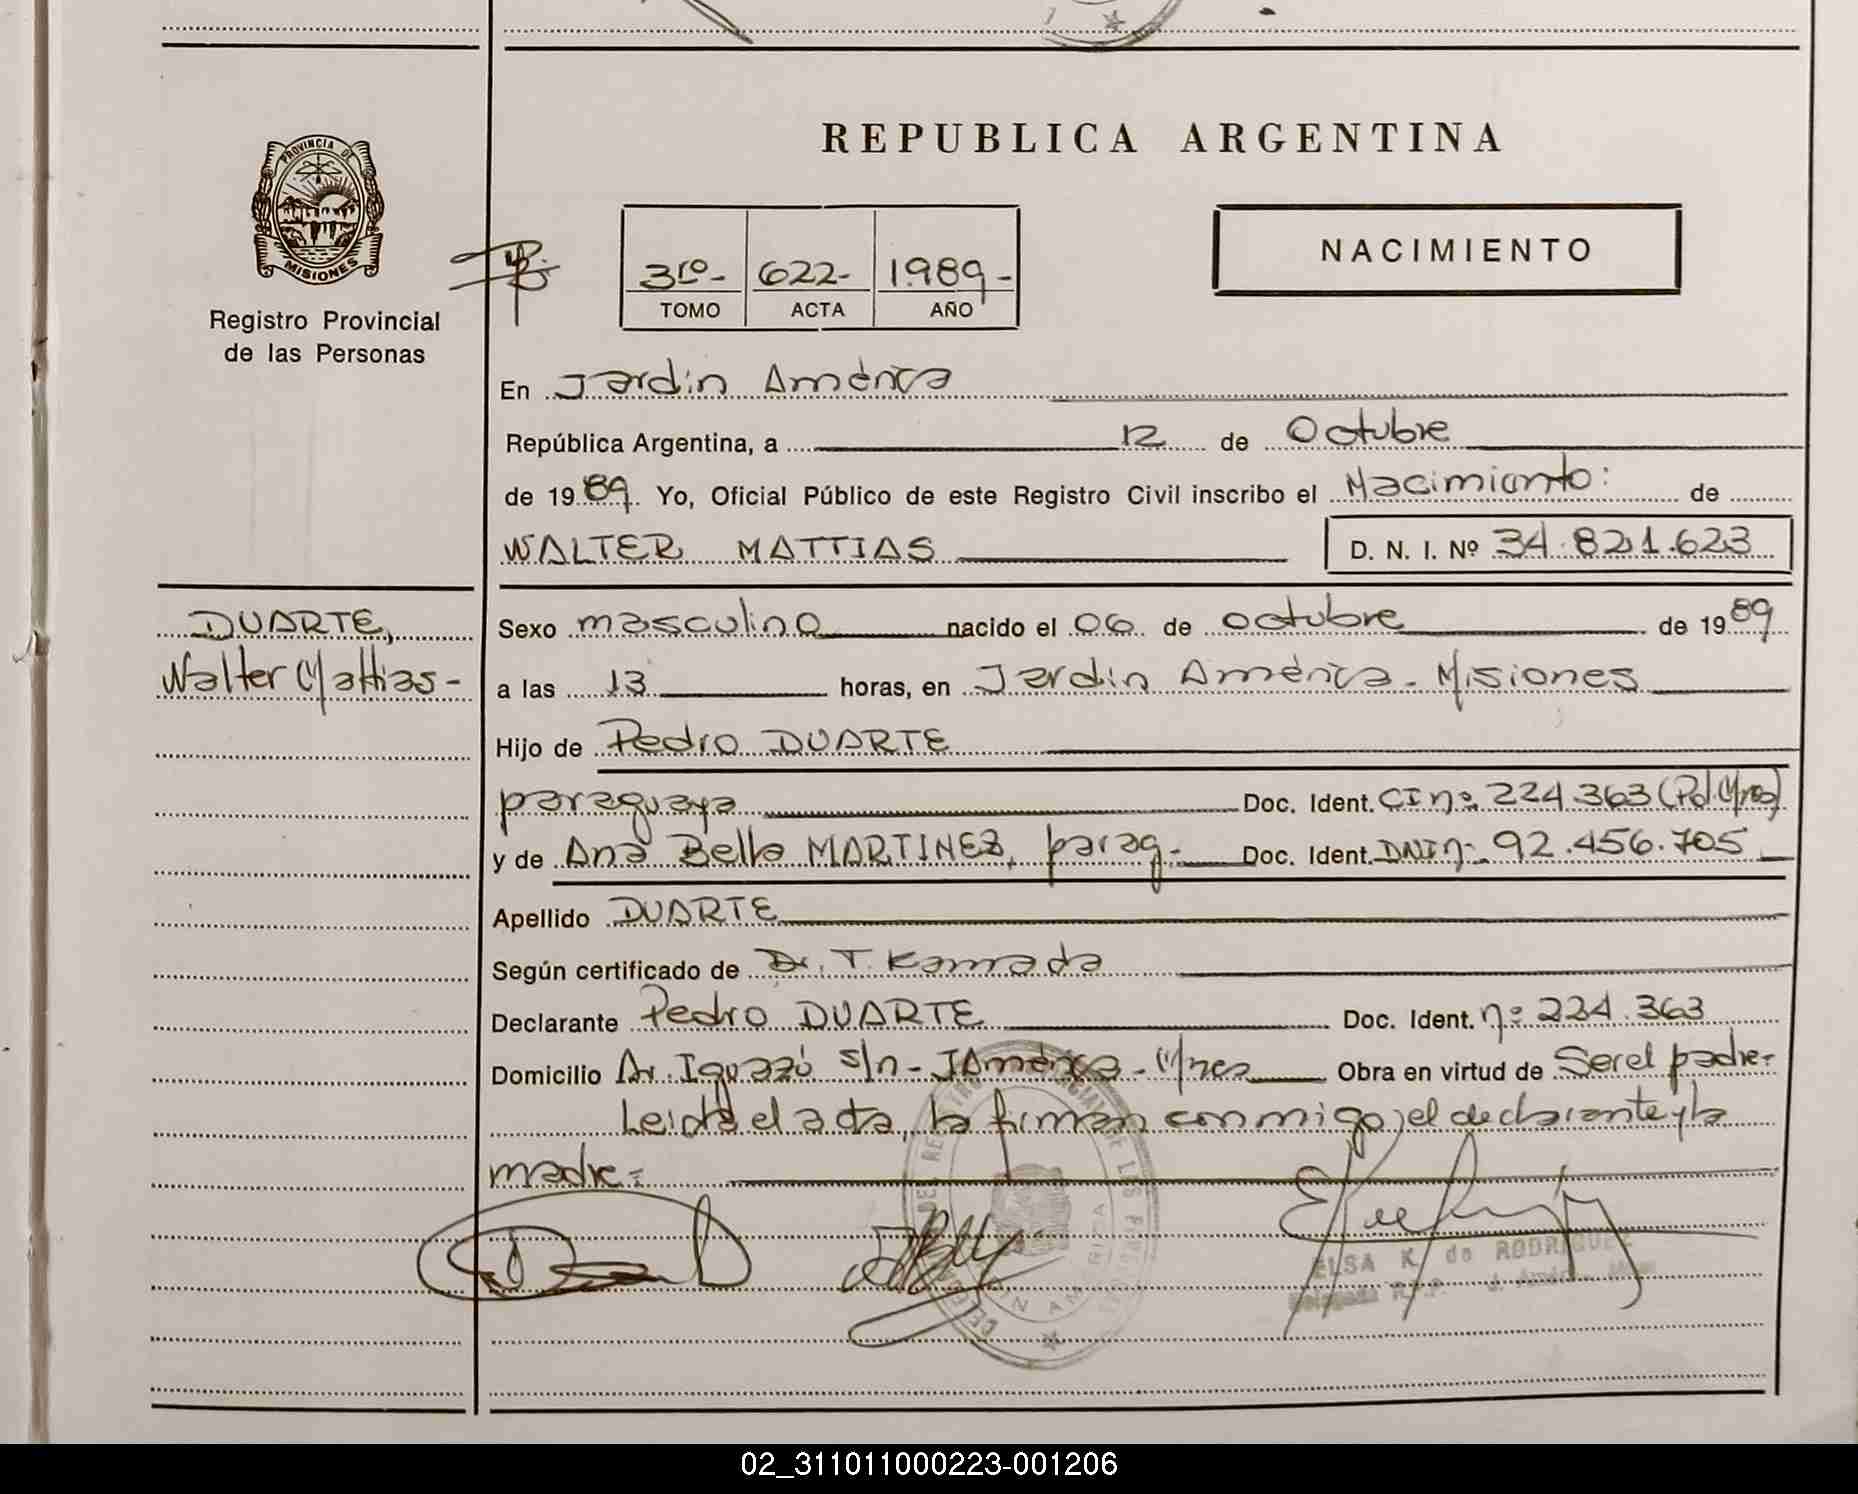 REPUBLICA ARGENTINA
PROVINCIA DE
MISIONES
Registro Provincial
de las Personas
3ro- 622- 1989-
TOMO ACTA AÑO
NACIMIENTO
En Jardin América
República Argentina, a 12 de Octubre
de 1989. Yo, Oficial Público de este Registro Civil inscribo el Nacimiento: de
WALTER MATTIAS D. N. I. Nº 34.821.623
DUARTE,
Walter Mattias-
Sexo masculino nacido el 06 de octubre de 1989
a las 13 horas, en Jardin América - Misiones
Hijo de Pedro DUARTE
paraguaya Doc. Ident. CI nº 224.363 (Pol. Mnes)
y de Ana Bella MARTINEZ, parag.- Doc. Ident. DNI nº 92.456.705
Apellido DUARTE
Según certificado de Dr. T. Kamada
Declarante Pedro DUARTE Doc. Ident. nº 224.363
Domicilio Av. Iguazú s/n - J América - Mnes Obra en virtud de Ser el padre-
Leida el acta, la firman conmigo, el declarante y la
madre=
ELSA K. de RODRIGUEZ
Delegada R.P.P.
02_311011000223-001206